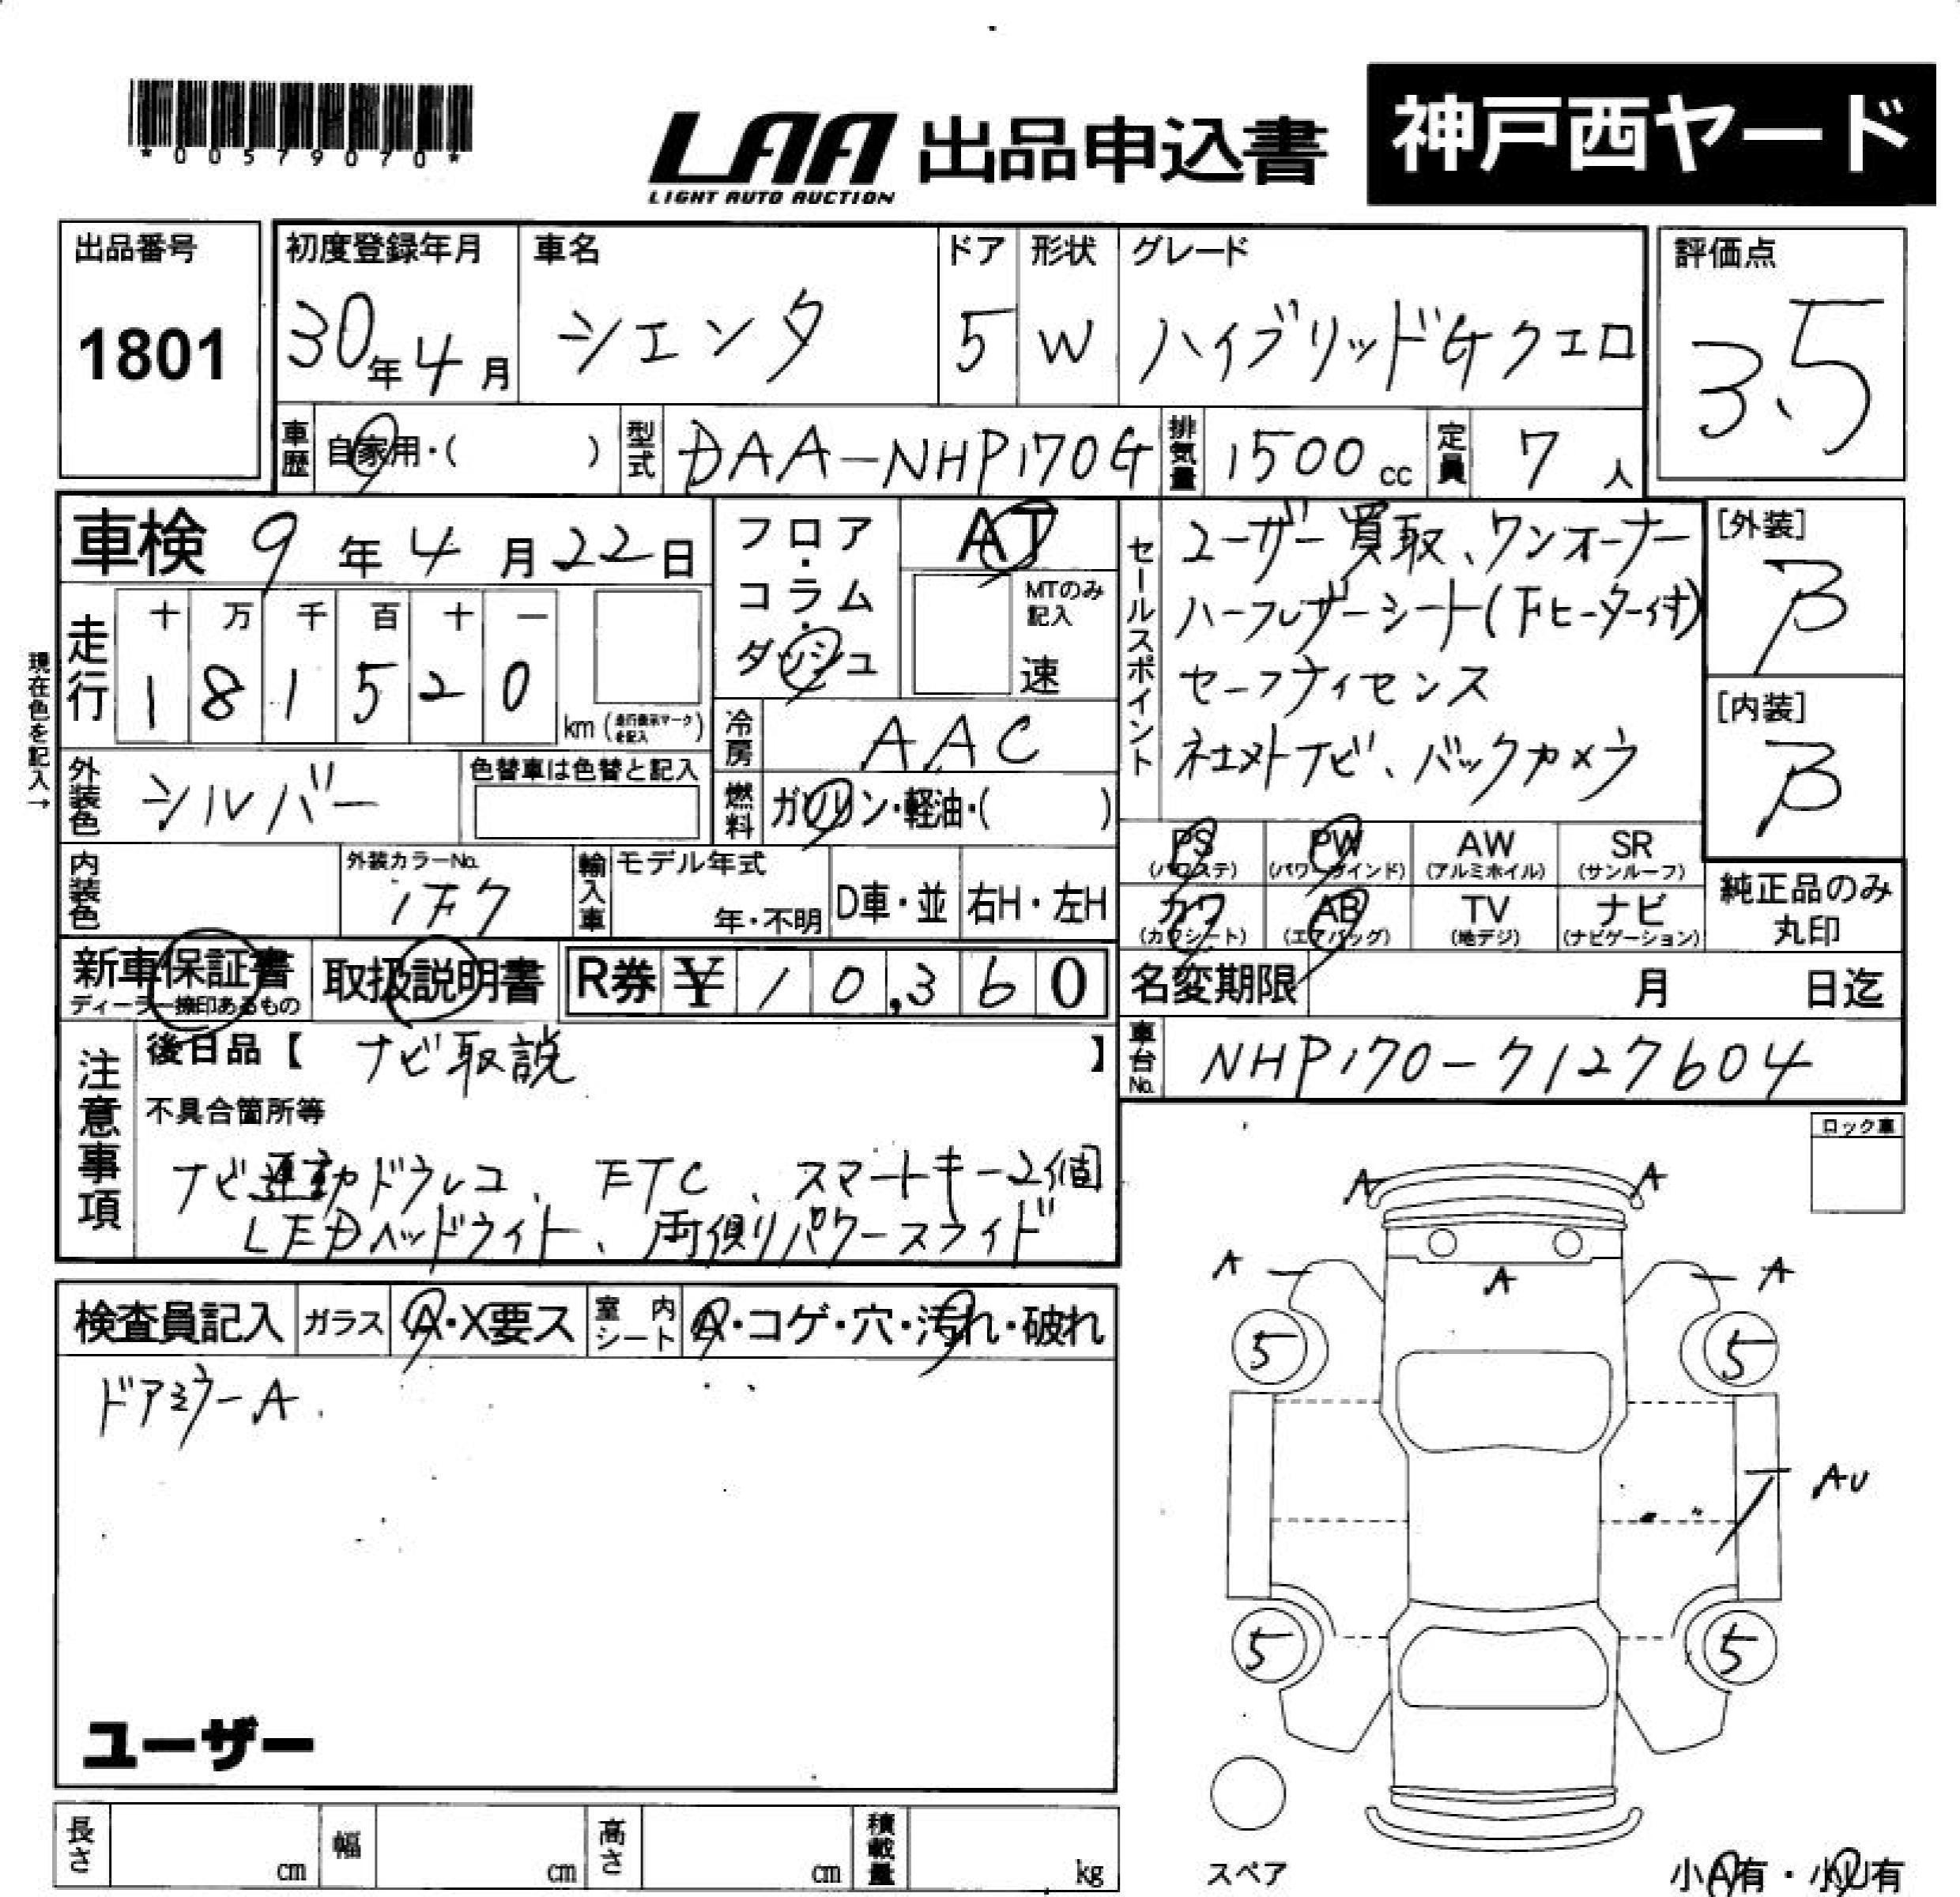 *00579070*
LAA 出品申込書 神戸西ヤード
LIGHT AUTO AUCTION
出品番号 1801
初度登録年月 30年4月
車名 シエンタ
ドア 5
形状 W
グレード ハイブリッドGクエロ
評価点 3.5
車歴 自家用・( )
型式 DAA-NHP170G
排気量 1500cc
定員 7人
車検 9年4月22日
フロア・コラム・ダッシュ
AT
MTのみ記入
速
現在色を記入→
走行 十 万 千 百 十 一
1 8 1 5 2 0 km (走行表示マークを記入)
冷房 AAC
外装色 シルバー
色替車は色替と記入
燃料 ガソリン・軽油・( )
セールスポイント
ユーザー買取、ワンオーナー
ハーフレザーシート(下ヒーター付)
セーフティセンス
ナビ、バックカメラ
[外装] B
[内装] B
PS (パワステ) PW (パワーウインド) AW (アルミホイル) SR (サンルーフ)
カワ (カワシート) AB (エアバッグ) TV (地デジ) ナビ (ナビゲーション)
純正品のみ丸印
内装色
外装カラーNo. 1F7
輸入車 モデル年式 年・不明 D車・並 右H・左H
新車保証書 ディーラー捺印あるもの
取扱説明書
R券 ¥10,360
名変期限 月 日迄
車台No. NHP170-7127604
注意事項
後日品【 ナビ取説 】
不具合箇所等
ナビ連動ドラレコ、ETC、スマートキー2個
LEDヘッドライト、両側パワースライド
ロック車
検査員記入 ガラス A・X要ス 室内シート A・コゲ・穴・汚れ・破れ
ドアミラーA
ユーザー
A A
A A A
5 5
AU
5 5
スペア
小A有・小U有
長さ cm 幅 cm 高さ cm 積載量 kg